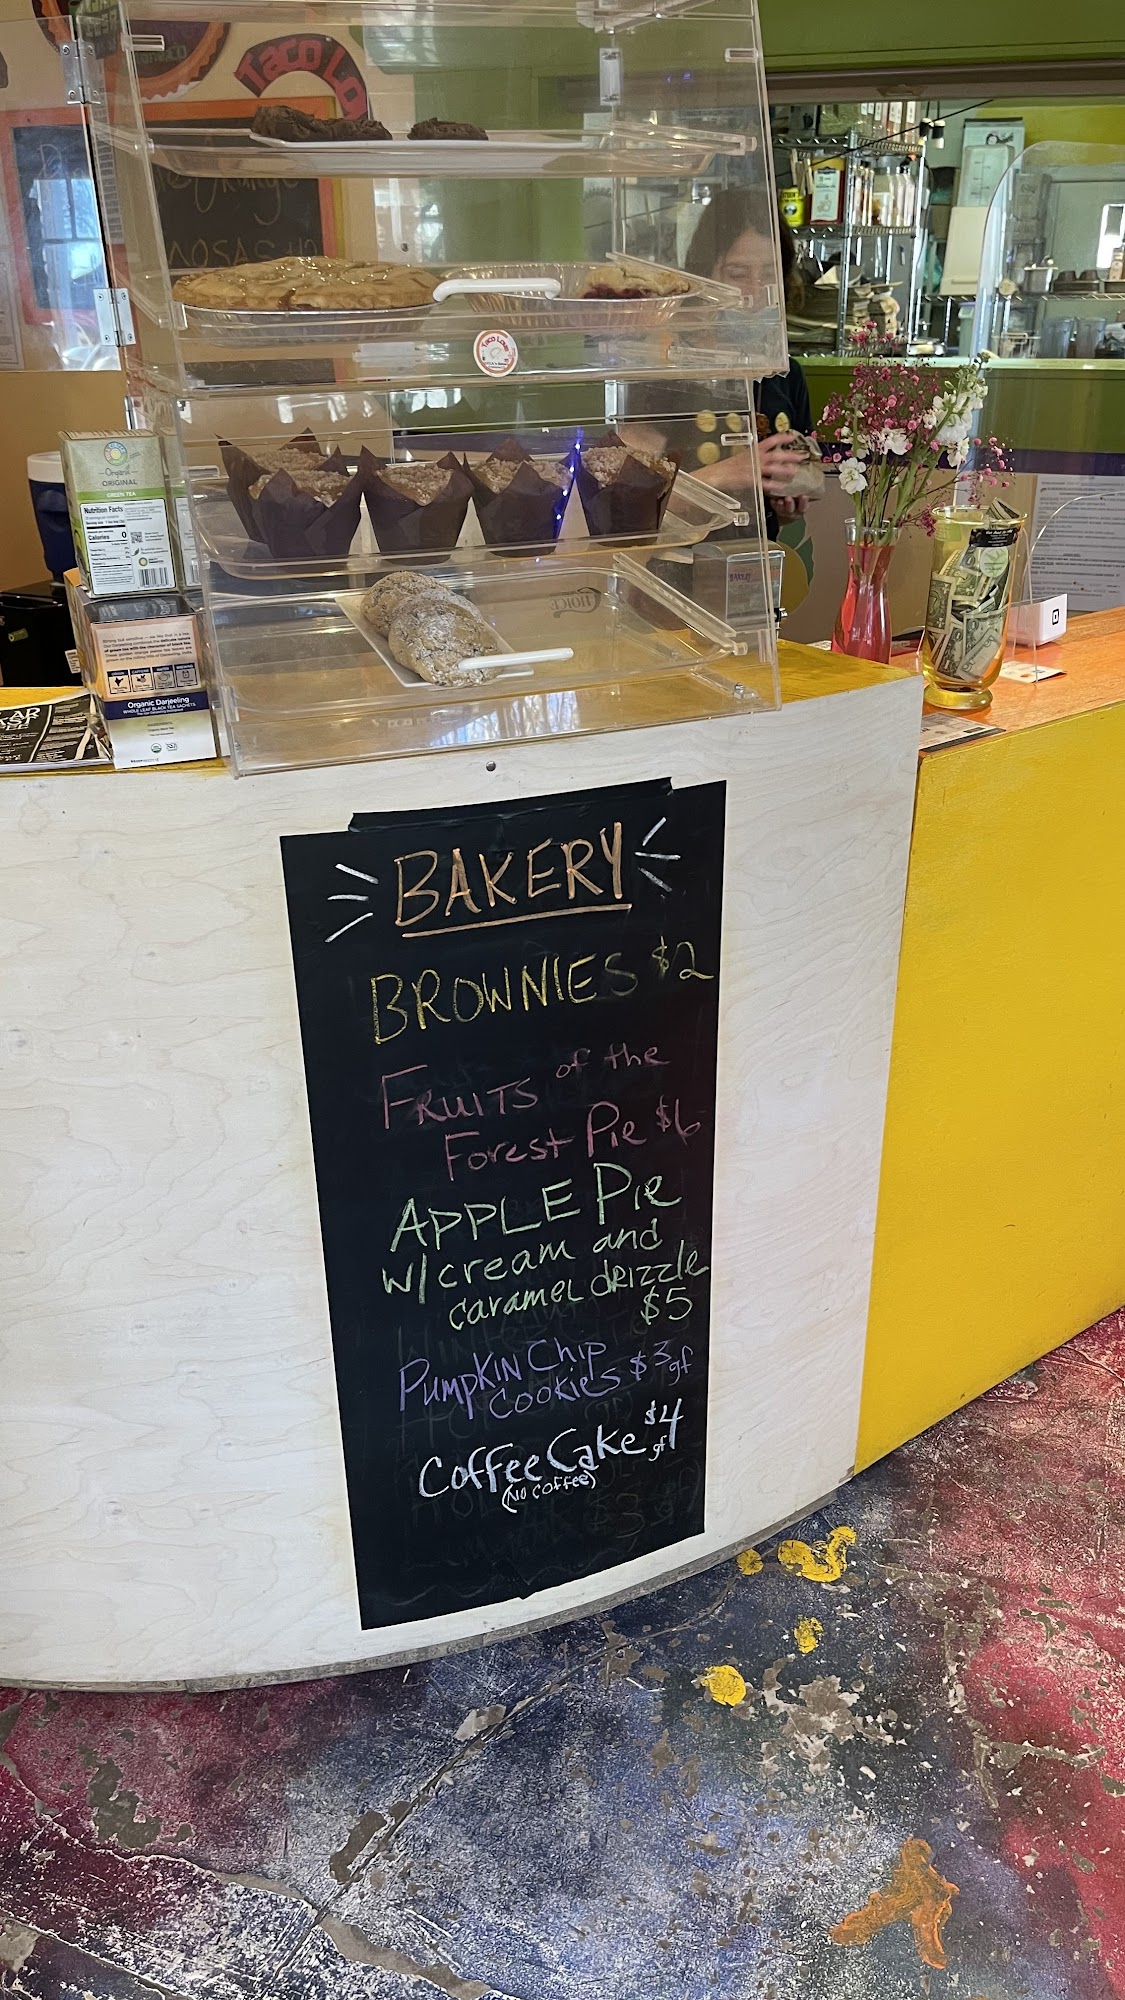 TACO LO
MOSAS
TACO LOVE
Organic
ORIGINAL
GREEN TEA
Nutrition Facts
Calories 0
Organic Darjeeling
WHOLE LEAF BLACK TEA SACHETS
CHOICE
BAKERY
BROWNIES $2
FRUITS of the
Forest Pie $6
APPLE Pie
w/cream and
caramel drizzle
$5
Pumpkin Chip
Cookies $3 gf
Coffee Cake $4
gf
(NO COFFEE)